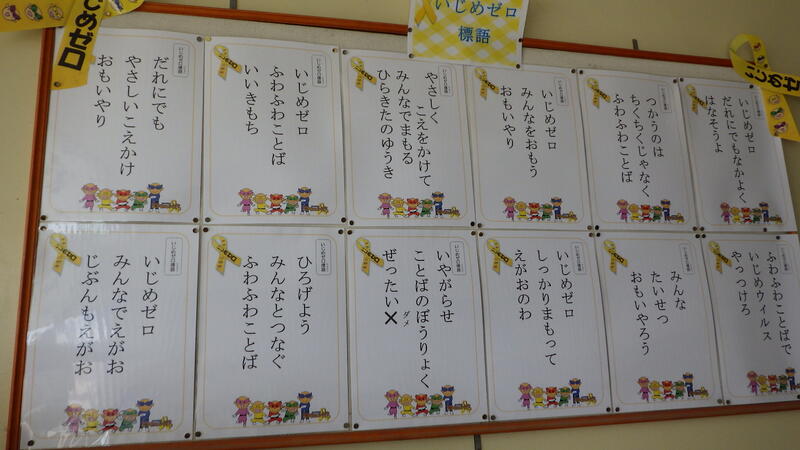 いじめゼロ
標語
いじめゼロ
いじめゼ
いじめゼロ標語
いじめゼロ
だれにでもなかよく
はなそうよ
いじめゼロ標語
つかうのは
ちくちくじゃなく
ふわふわことば
いじめゼロ標語
いじめゼロ
みんなをおもう
おもいやり
いじめゼロ標語
やさしく こえをかけて
みんなでまもる
ひらきたのゆうき
いじめゼロ標語
いじめゼロ
ふわふわことば
いいきもち
いじめゼロ標語
だれにでも
やさしいこえかけ
おもいやり
いじめゼロ標語
ふわふわことばで
いじめウィルス
やっつけろ
いじめゼロ標語
みんな
たいせつ
おもいやろう
いじめゼロ標語
いじめゼロ
しっかりまもって
えがおのわ
いじめゼロ標語
いやがらせ
ことばのぼうりょく
ぜったい×
ダメ
いじめゼロ標語
ひろげよう
みんなとつなぐ
ふわふわことば
いじめゼロ標語
いじめゼロ
みんなでえがお
じぶんもえがお